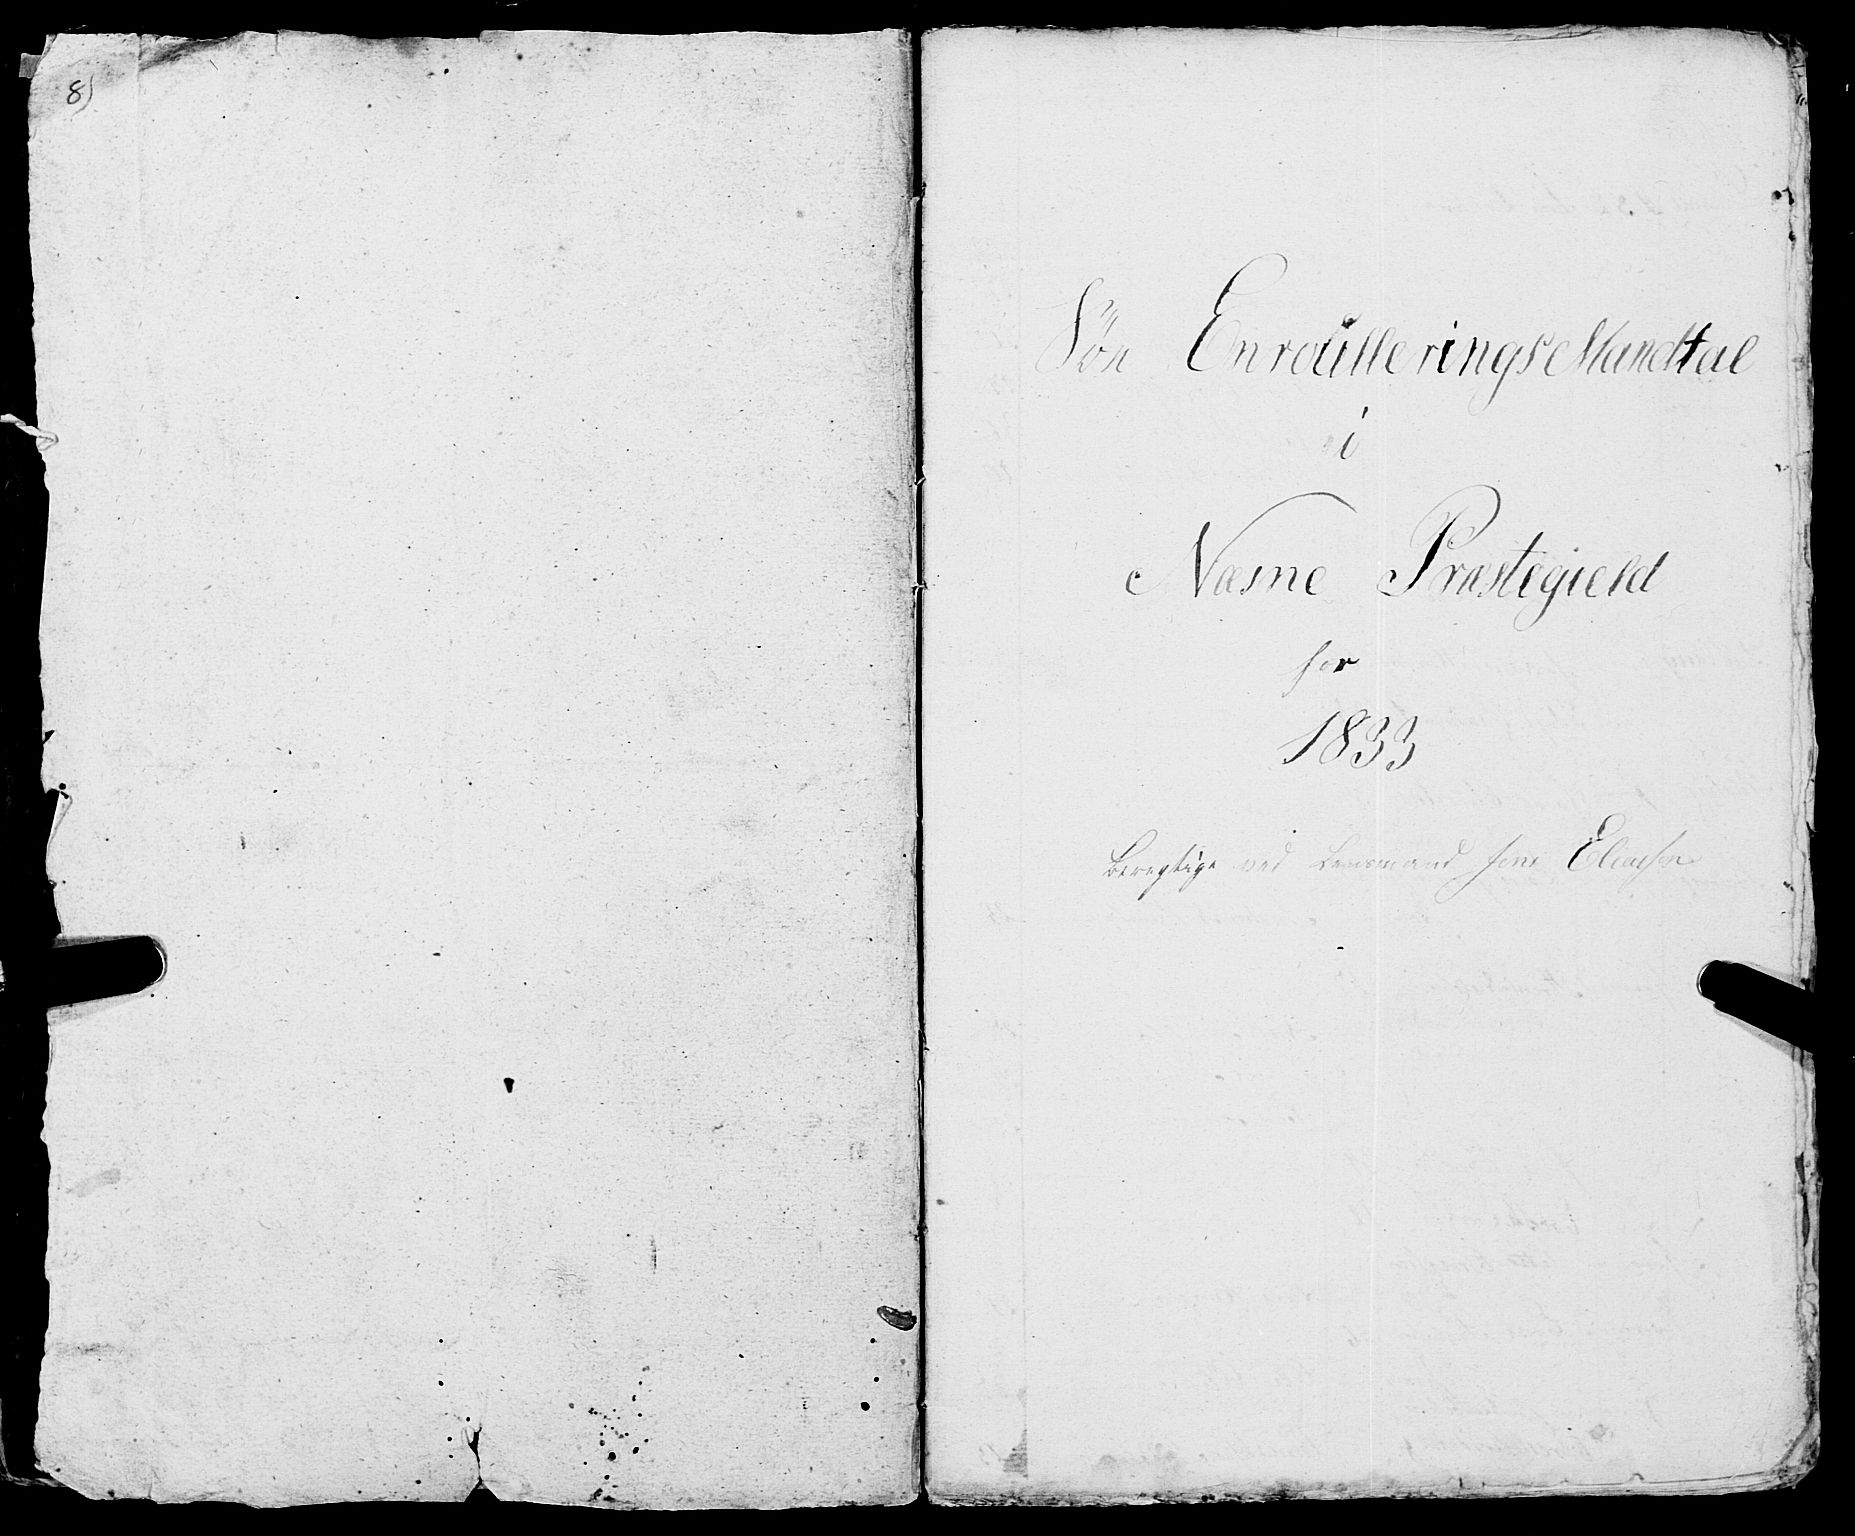 8)
Söe EnroulleringsMandtal
i
Næsne Præstegield
for
1833
Beregtige ved Lensmand Jens Eliasen